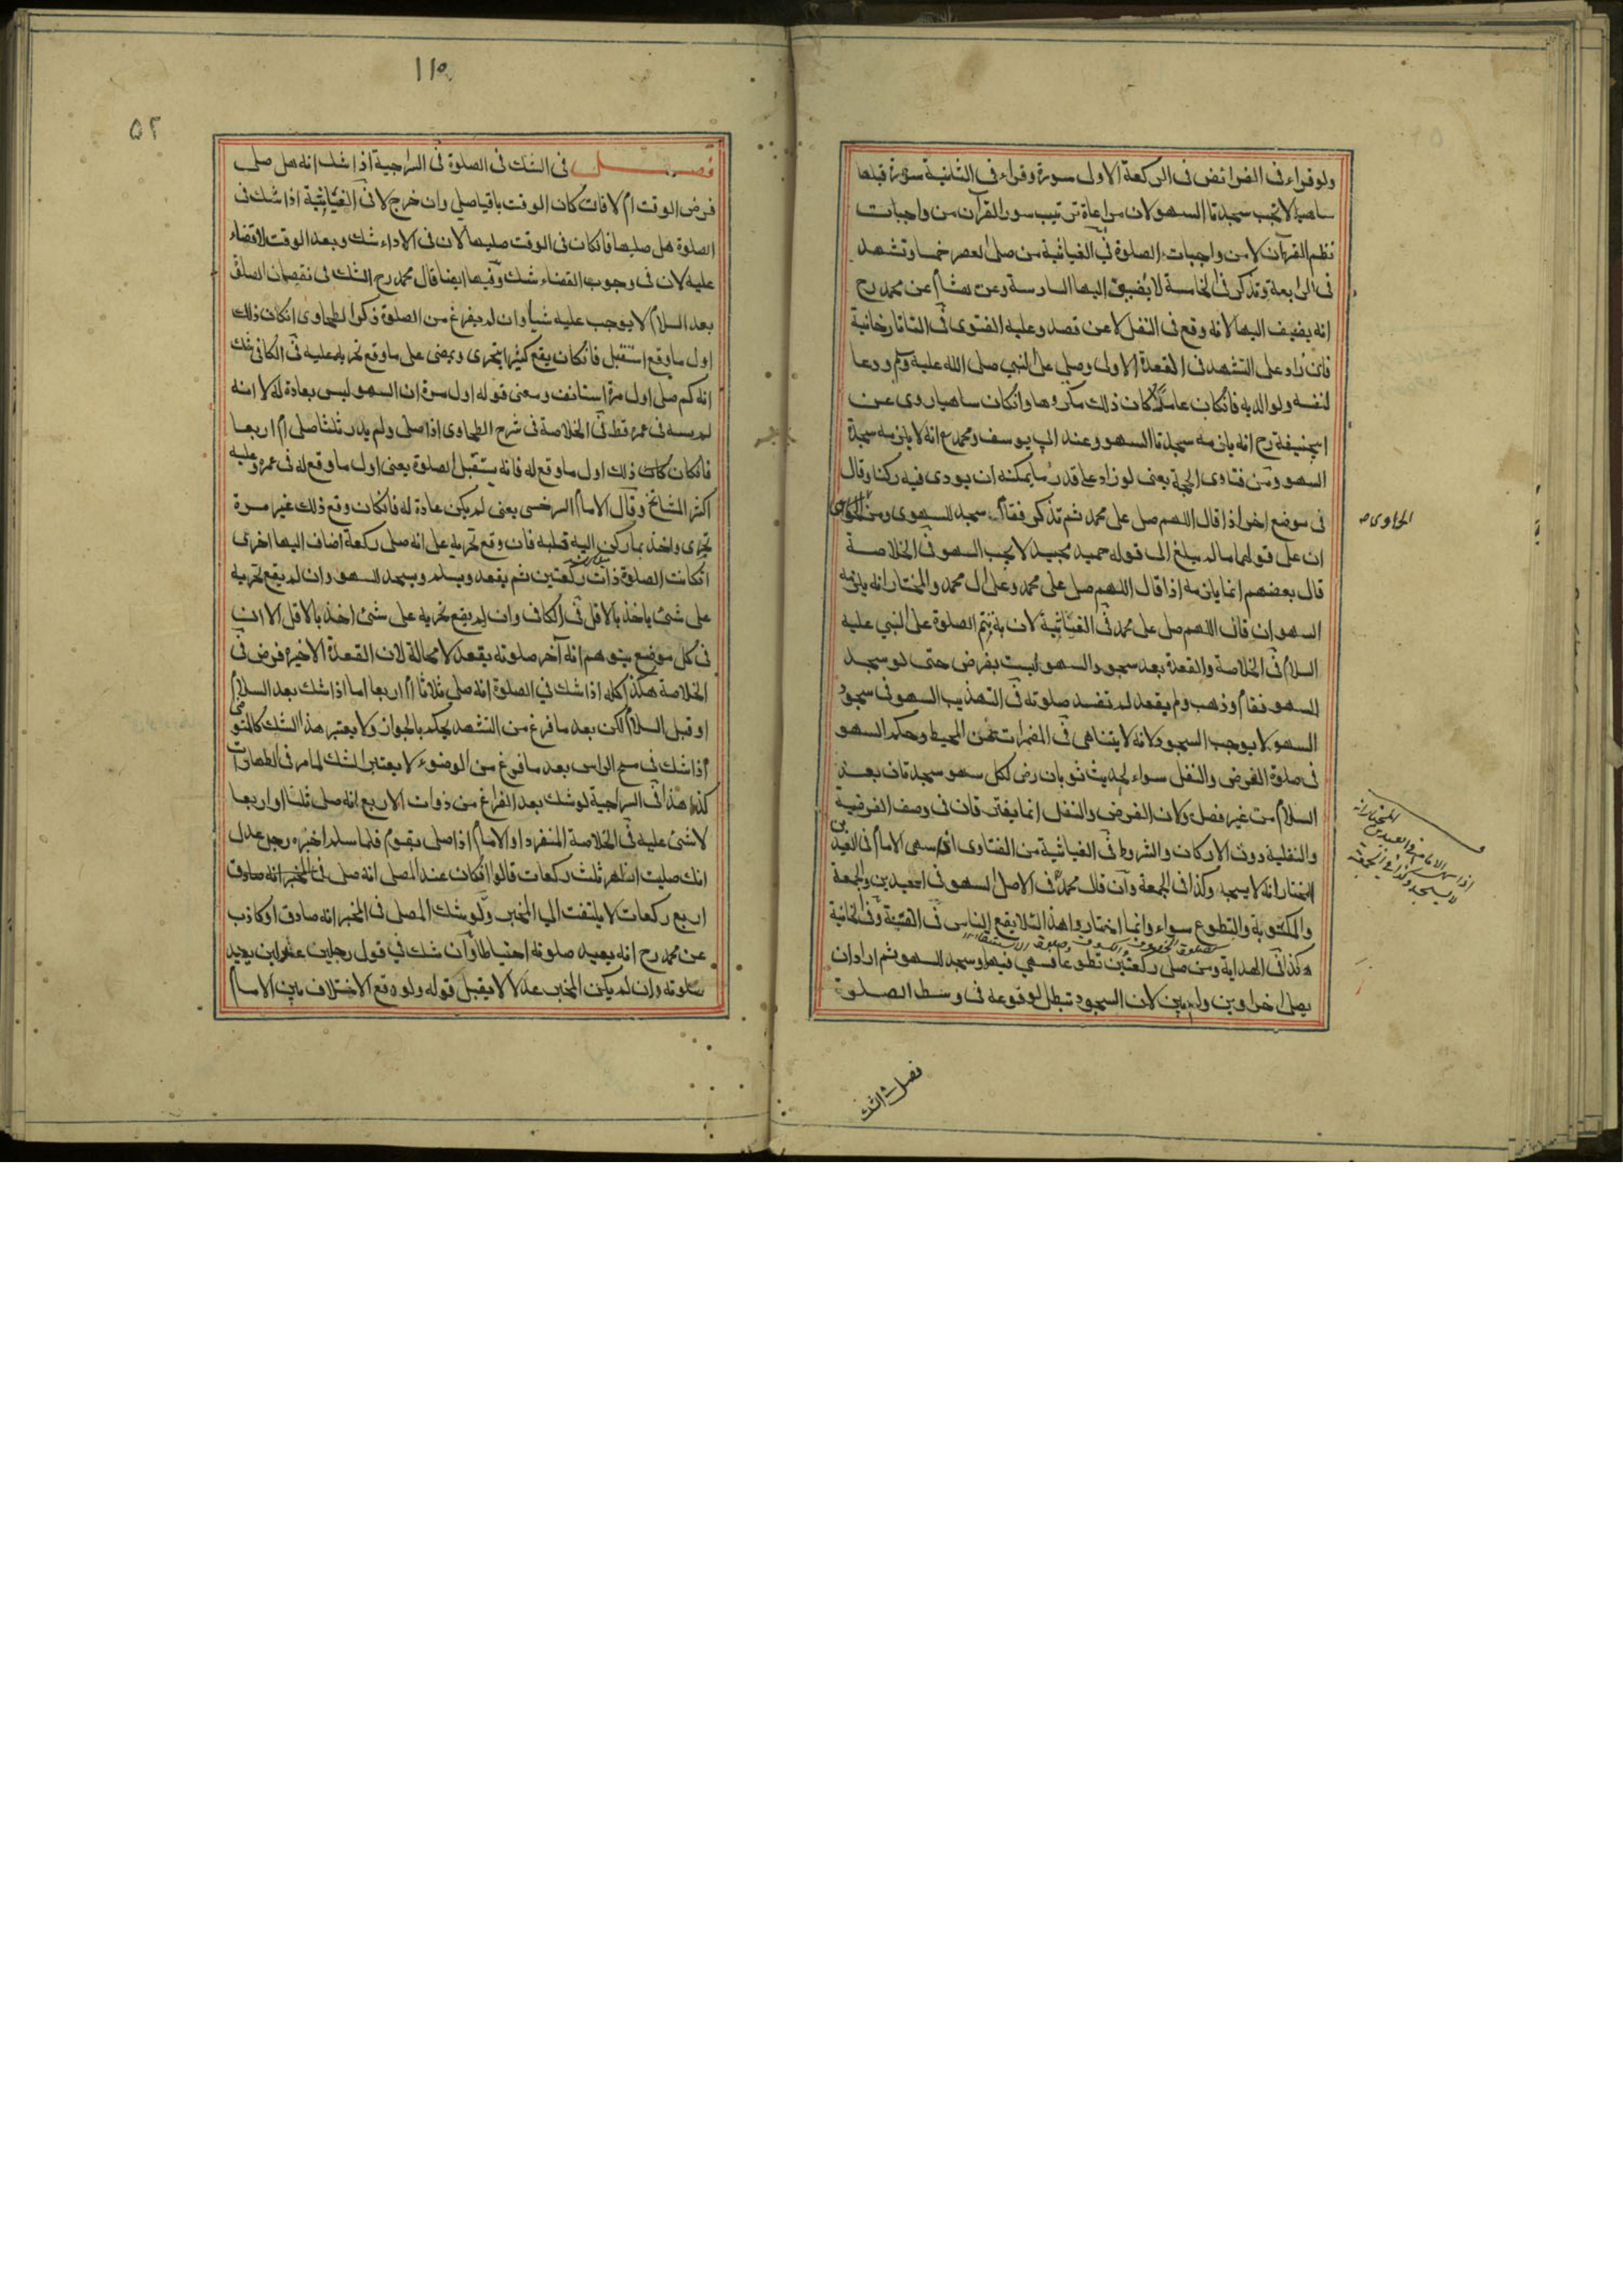 ولو قراء فى الفرائض فى الركعة الاولى سورة وقراء فى الثانية سورة قبلها
ساهيا لا تجب سجدتا السهو لان مراعاة ترتيب سور القرآن من واجبات
نظم القرآن لا من واجبات الصلوة فى الغياثية من صلى العصر خمسا وتشهد
فى الرابعة وتذكر فى الخامسة لا يضيف اليها السادسة وعن هشام عن محمد رح
انه يضيف اليها لانه وقع فى النفل لا عن قصد وعليه الفتوى فى التاتارخانية
فان زاد على التشهد فى القعدة الاولى وصلى على النبى صلى الله عليه وسلم ودعا
لنفسه ولوالديه فانكان عامدا كان ذلك مكروها وانكان ساهيا روى عن
ابيحنيفة رح انه يلزمه سجدتا السهو وعند ابى يوسف ومحمد ع انه لا يلزمه سجدة
السهو ومن فتاوى الحجة يعنى لو زاد عليه قدر ما يمكنه ان يودى فيه ركنا وقال
فى موضع اخر اذا قال اللهم صل على محمد ثم تذكر فقام سجد للسهو ومن الحاوى
الحاوى
ان على قولهما مالم يبلغ الى قوله حميد مجيد لا يجب السهو فى الخلاصة
قال بعضهم انما يلزمه اذا قال اللهم صل على محمد وعلى ال محمد والمختار انه يلزمه
السهو ان قال اللهم صل على محمد فى الغياثية لان به يتم الصلوة على النبى عليه
السلام فى الخلاصة والقعدة بعد سجود السهو ليست بفرض حتى لو سجد
للسهو فقام وذهب ولم يقعد لم تفسد صلوته فى التهذيب السهو فى سجود
السهو لا يوجب السجود لانه لا يتناهى فى المضمرات من المحيط وحكم السهو
فى صلوة الفرض والنفل سواء لحديث ثوبان رض لكل سهو سجدتان بعد
السلام من غير فصل ولان الفرض والنفل انما يفترقان فى وصف الفرضية
والنفلية دون الاركان والشروط فى الغياثية من الفتاوى اذا سهى الامام فى العيدين
المختار انه لا يسجد وكذا فى الجمعة وان قال محمد فى الاصل السهو فى العيدين والجمعة
والمكتوبة والتطوع سواء وانما اختاروا هذا لئلا يقع الناس فى الفتنة وفى الخانية
هكذا فى الهداية ومن صلى ركعتين تطوعا فسهى فيها وسجد للسهو ثم اراد ان
يصلى اخراوين ولم يبن لان السجود تبطل لوقوعه فى وسط الصلوة
فصل فى الشك
١١٥
٥٢
فصل فى الشك فى الصلوة فى السراجية اذا شك انه هل صلى
فرض الوقت ام لا فان كان الوقت باقيا صلى وان خرج لا فى الغياثية اذا شك فى
الصلوة هل صليها فانكان فى الوقت صليها لان فى الاداء شك وبعد الوقت لا قضاء
عليه لان فى وجوب القضاء شك وفيها ايضا قال محمد رح الشك فى نقصان الصلوة
بعد السلام لا يوجب عليه شيأ وان لم يفرغ من الصلوة ذكر الطحاوى انكان ذلك
اول ما وقع استقبل فانكان يقع كثيرا يتحرى ويمضى على ما وقع تحريه عليه فى الكافى شك
انه كم صلى اول مرة استانف ومعنى قوله اول مرة ان السهو ليس بعادة له لا انه
لم يسه فى عمره قط فى الخلاصة فى شرح الطحاوى اذا صلى ولم يدر ثلثا صلى ام اربعا
فانكان ذلك اول ما وقع له فانه يستقبل الصلوة يعنى اول ما وقع له فى عمره وعليه
اكثر المشائخ وقال الامام السرخسى يعنى لم يكن عادة له فانكان وقع ذلك غير مرة
تحرى واخذ بما ركن اليه قلبه فان وقع تحريه على انه صلى ركعة اضاف اليها اخرى
انكانت الصلوة ذات ركعتين ثم يقعد ويسلم ويسجد للسهو وان لم يقع تحريه
على شئ ياخذ بالاقل فى الكافى وان لم يقع تحريه على شئ اخذ بالاقل الا ان
فى كل موضع يتوهم انه آخر صلوته يقعد لا محالة لان القعدة الاخيرة فرض فى
الخلاصة هكذا كله اذا شك فى الصلوة انه صلى ثلاثا ام اربعا اما اذا شك بعد السلام
او قبل السلام لكن بعد ما فرغ من التشهد يحكم بالجواز ولا يعتبر هذا الشك كالمتوضى
اذا شك فى مسح الراس بعد ما فرغ من الوضوء لا يعتبر الشك لما مر فى الطهارات
كذا هذا فى السراجية لو شك بعد الفراغ من ذوات الاربع انه صلى ثلثا او اربعا
لا شئ عليه فى الخلاصة المنفرد او الامام اذا صلى بقوم فلما سلم اخبره رجل عدل
انك صليت الظهر ثلث ركعات قالوا انكان عند المصلى انه صلى
اربع ركعات لا يلتفت الى المخبر ولو شك المصلى فى المخبر انه صادق او كاذب
عن محمد رح انه يعيد صلوته احتياطا وان شك فى قول رجلين عدلين يعيد
صلوته وان لم يكن المخبر عدلا لا يقبل قوله ولو وقع الاختلاف بين الامام